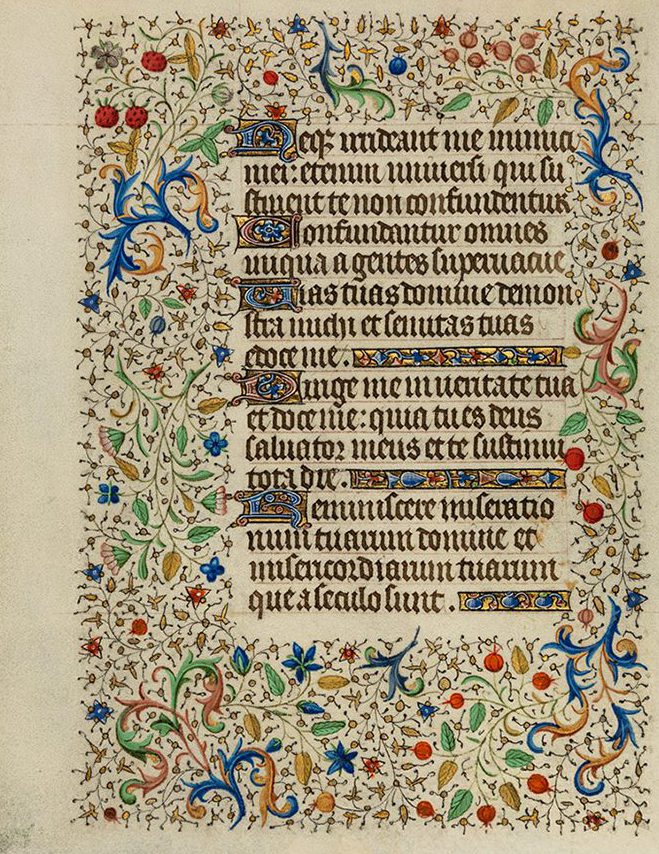 Neqꝫ irrideant me inimici
mei: etenim universi qui su
stinent te non confundentur
Confundantur omnes
iniqua agentes supervacue
Vias tuas domine demon
stra michi et semitas tuas
edoce me.
Dirige me in veritate tua
et doce me: quia tu es deus
salvator meus et te sustinui
tota die.
Reminiscere miseratio
num tuarum domine et
misericordiarum tuarum
que a seculo sunt.